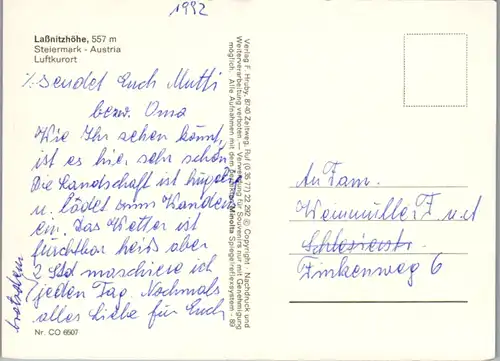 1992
Laßnitzhöhe, 557 m
Steiermark - Austria
Luftkurort
sendet Euch Mutti
bezw. Oma
Wie Ihr sehen könnt,
ist es hie. sehr schön
Die Landschaft ist hügelig
u. lädet zum Wandern
ein. Das Wetter ist
furchtbar heiß aber
2 Std marschiere ich
jeden Tag. Nochmals
alles Liebe für Euch
trotzdem
Nr. CO 6507
Verlag F. Hruby, 8740 Zeltweg, Ruf (0 35 77) 22 292 © Copyright - Nachdruck und
Weiterverarbeitung verboten — Verwendung für Souvenirs nur mit Genehmigung
möglich. Alle Aufnahmen mit dem Minolta Spiegelreflexsystem - 89
An Fam.
Weinmüller F. u
Schlesierstr.
Finkenweg 6